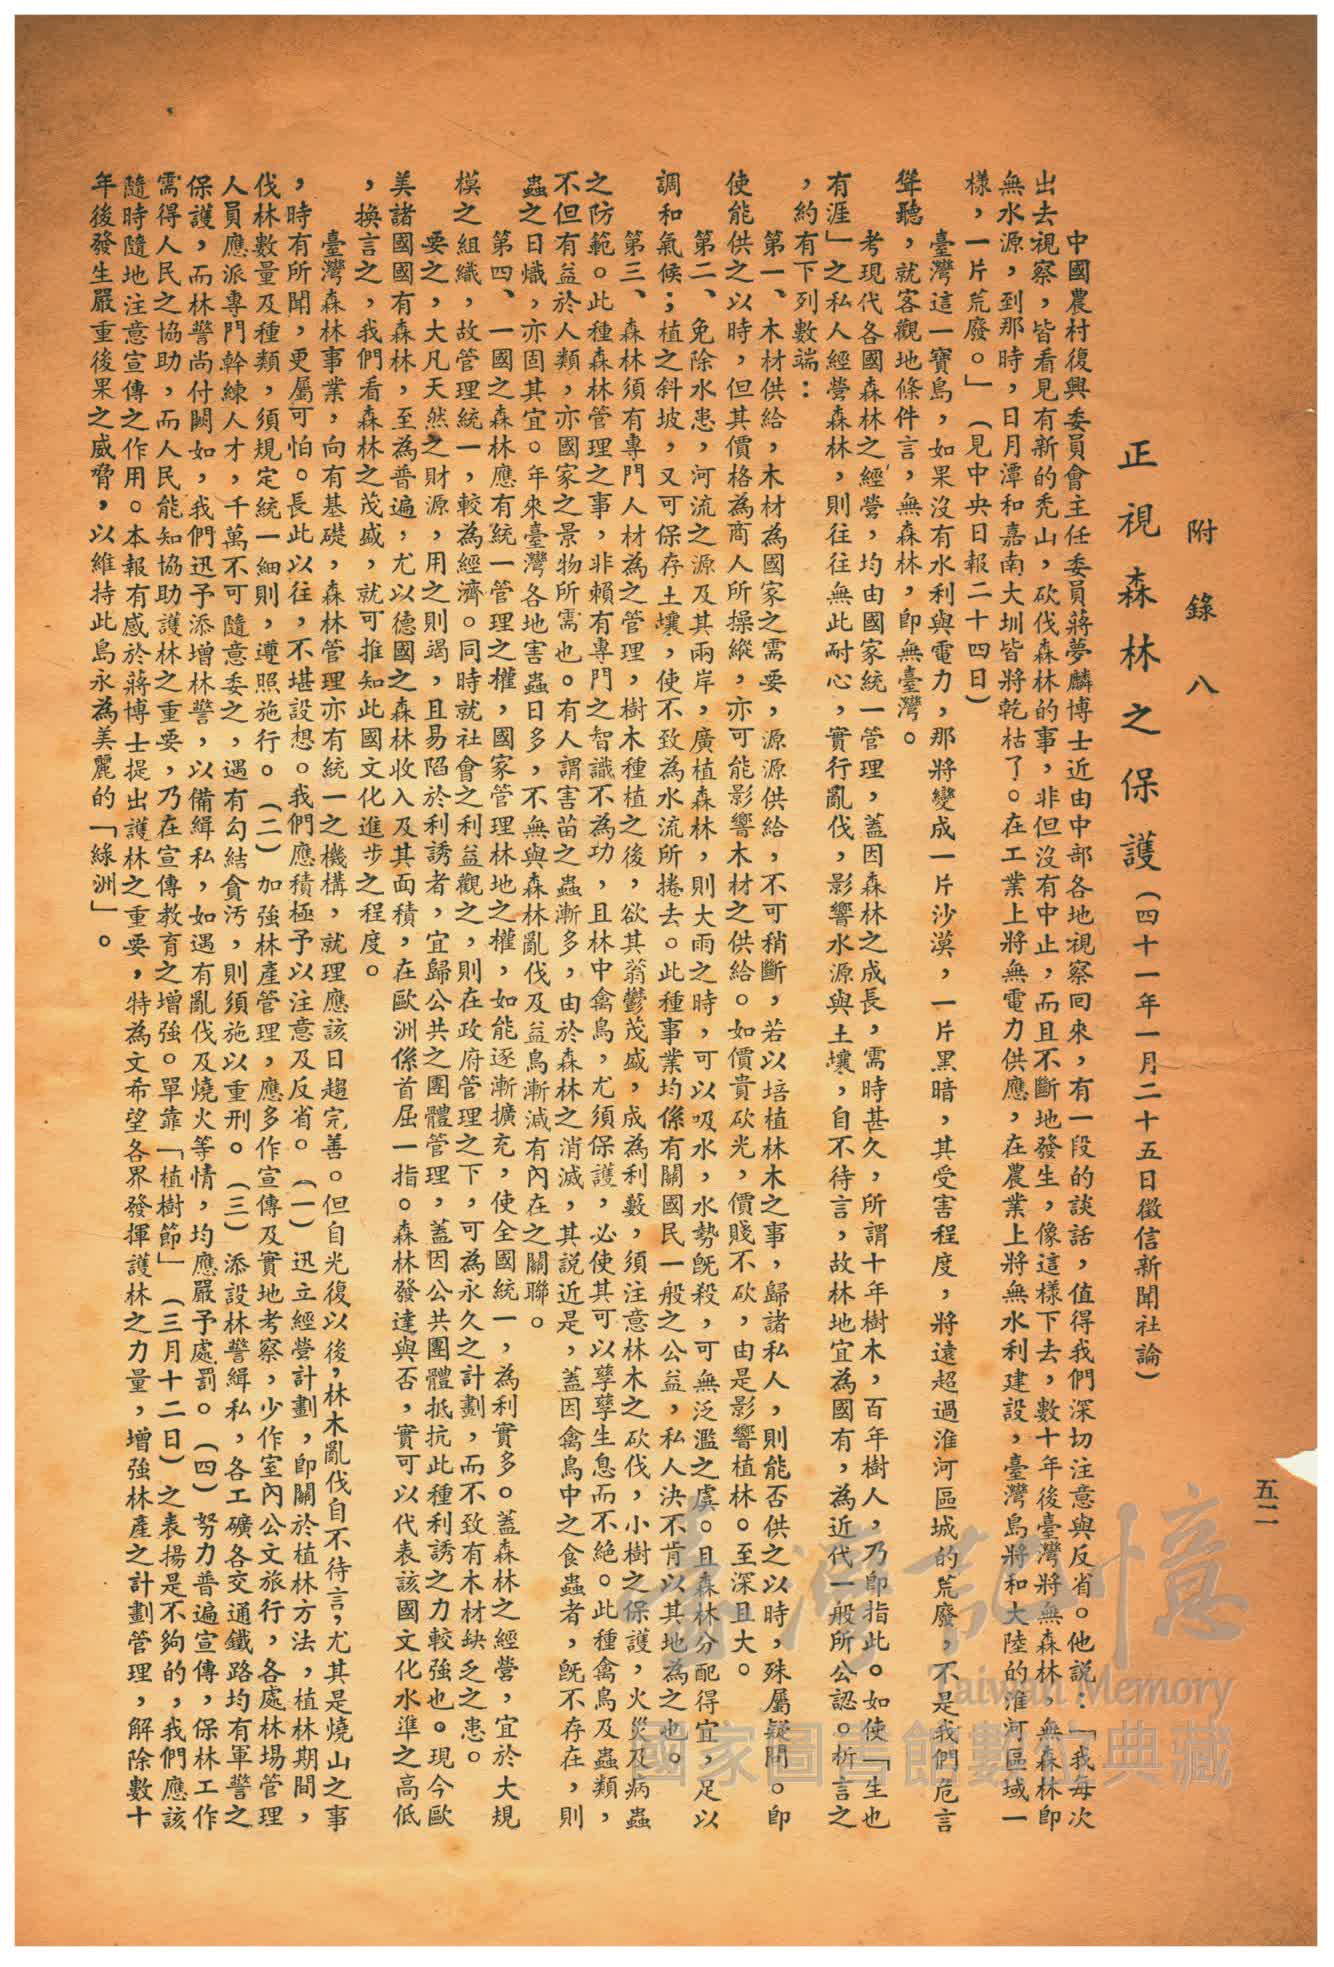 附錄八
正視森林之保護(四十一年一月二十五日徵信新聞社論)
中國農村復興委員會主任委員蔣夢麟博士近由中部各地視察回來,有一段的談話,值得我們深切注意與反省。他說:「我每次
出去視察,皆看見有新的禿山,砍伐森林的事,非但沒有中止,而且不斷地發生,像這樣下去,數十年後臺灣將無森林,無森林即
無水源,到那時,日月潭和嘉南大圳皆將乾枯了。在工業上將無電力供應,在農業上將無水利建設,臺灣島將和大陸的淮河區域一
樣,一片荒廢。」(見中央日報二十四日)
臺灣這一寶島,如果沒有水利與電力,那將變成一片沙漠,一片黑暗,其受害程度,將遠超過淮河區域的荒廢,不是我們危言
聳聽,就客觀地條件言,無森林,即無臺灣。
考現代各國森林之經營,均由國家統一管理,蓋因森林之成長,需時甚久,所謂十年樹木,百年樹人,乃即指此。如使「生也
有涯」之私人經營森林,則往往無此耐心,實行亂伐,影響水源與土壤,自不待言,故林地宜為國有,為近代一般所公認。析言之
,約有下列數端:
第一、木材供給,木材為國家之需要,源源供給,不可稍斷,若以培植林木之事,歸諸私人,則能否供之以時,殊屬疑問。即
使能供之以時,但其價格為商人所操縱,亦可能影響木材之供給。如價貴砍光,價賤不砍,由是影響植林。至深且大。
第二、免除水患,河流之源及其兩岸,廣植森林,則大雨之時,可以吸水,水勢既殺,可無泛濫之虞。且森林分配得宜,足以
調和氣候;植之斜坡,又可保存土壤,使不致為水流所捲去。此種事業均係有關國民一般之公益,私人決不肯以其地為之也。
第三、森林須有專門人材為之管理,樹木種植之後,欲其蓊鬱茂盛,成為利藪,須注意林木之砍伐,小樹之保護,火災及病蟲
之防範。此種森林管理之事,非賴有專門之智識不為功,且林中禽鳥,尤須保護,必使其可以孳孳生息而不絕。此種禽鳥及蟲類,
不但有益於人類,亦國家之景物所需也。有人謂害苗之蟲漸多,由於森林之消滅,其說近是,蓋因禽鳥中之食蟲者,既不存在,則
蟲之日熾,亦固其宜。年來臺灣各地害蟲日多,不無與森林亂伐及益鳥漸減有內在之關聯。
第四、一國之森林應有統一管理之權,國家管理林地之權,如能逐漸擴充,使全國統一,為利實多。蓋森林之經營,宜於大規
模之組織,故管理統一,較為經濟。同時就社會之利益觀之,則在政府管理之下,可為永久之計劃,而不致有木材缺乏之患。
要之,大凡天然之財源,用之則竭,且易陷於利誘者,宜歸公共之團體管理,蓋因公共團體抵抗此種利誘之力較強也。現今歐
美諸國國有森林,至為普遍,尤以德國之森林收入及其面積,在歐洲係首屈一指。森林發達與否,實可以代表該國文化水準之高低
,換言之,我們看森林之茂盛,就可推知此國文化進步之程度。
臺灣森林事業,向有基礎,森林管理亦有統一之機構,就理應該日趨完善。但自光復以後,林木亂伐自不待言,尤其是燒山之事
,時有所聞,更屬可怕。長此以往,不堪設想。我們應積極予以注意及反省。(一)迅立經營計劃,即關於植林方法,植林期間,
伐林數量及種類,須規定統一細則,遵照施行。(二)加強林產管理,應多作宣傳及實地考察,少作室內公文旅行,各處林場管理
人員應派專門幹練人才,千萬不可隨意委之,遇有勾結貪污,則須施以重刑。(三)添設林警緝私,各工礦各交通鐵路均有軍警之
保護,而林警尚付闕如,我們迅予添增林警,以備緝私,如遇有亂伐及燒火等情,均應嚴予處罰。(四)努力普遍宣傳,保林工作
需得人民之協助,而人民能知協助護林之重要,乃在宣傳教育之增強。單靠「植樹節」(三月十二日)之表揚是不夠的,我們應該
隨時隨地注意宣傳之作用。本報有感於蔣博士提出護林之重要,特為文希望各界發揮護林之力量,增強林產之計劃管理,解除數十
年後發生嚴重後果之威脅,以維持此島永為美麗的「綠洲」。
五二
臺灣記憶
Taiwan Memory
國家圖書館數位典藏